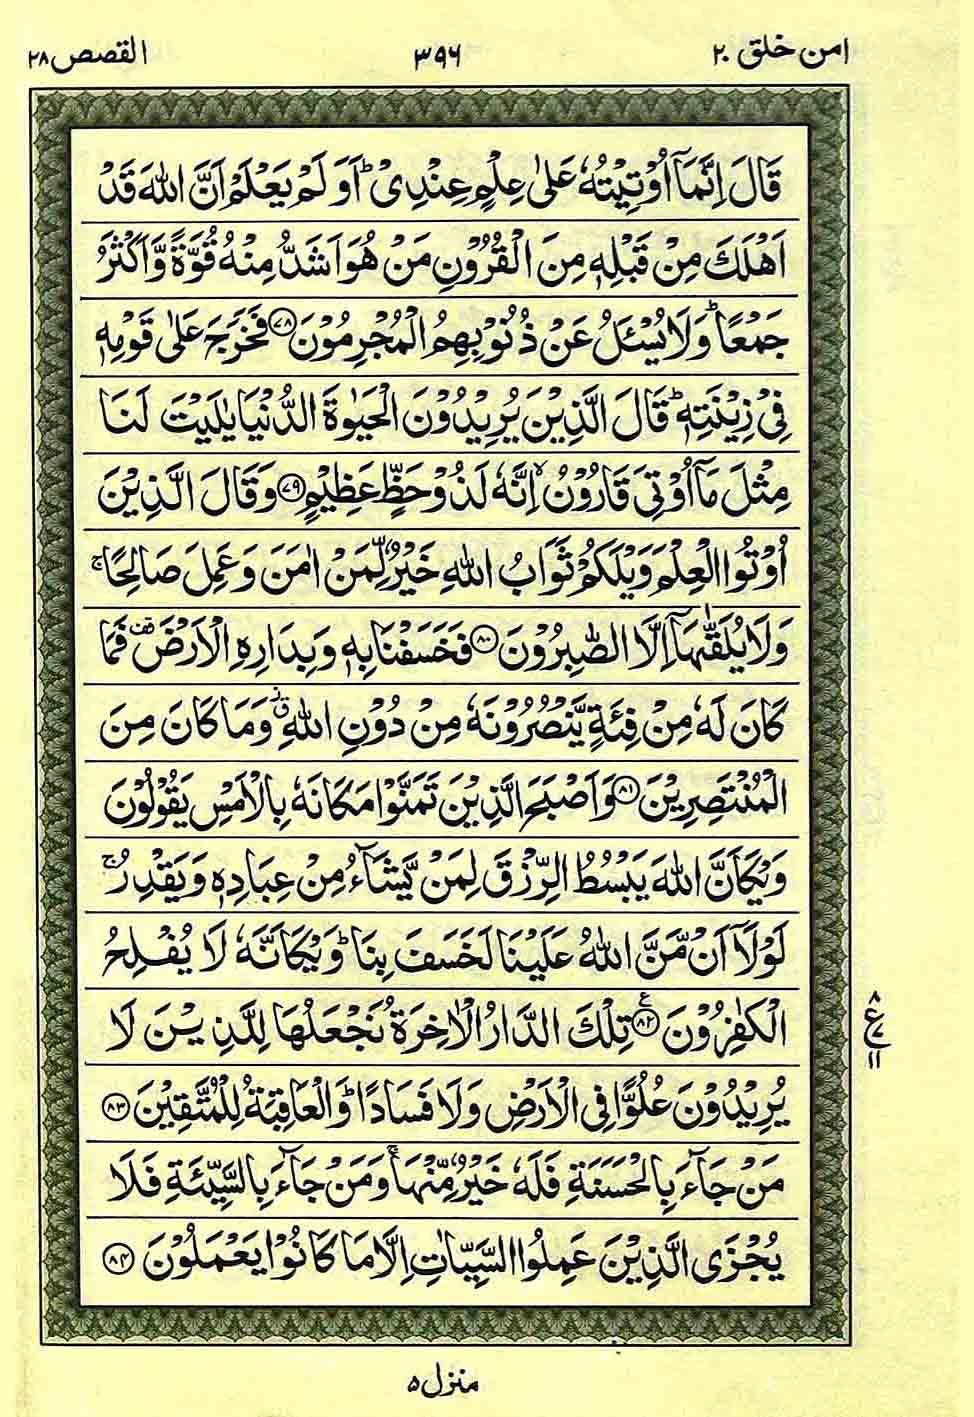 امن خلق ۲۰
۳۹۶
القصص ۲۸
قَالَ اِنَّمَاۤ اُوْتِیْتُهٗ عَلٰی عِلْمٍ عِنْدِیْ ؕ اَوَ لَمْ یَعْلَمْ اَنَّ اللّٰهَ قَدْ
اَهْلَكَ مِنْ قَبْلِهٖ مِنَ الْقُرُوْنِ مَنْ هُوَ اَشَدُّ مِنْهُ قُوَّةً وَّ اَكْثَرُ
جَمْعًا ؕ وَ لَا یُسْـَٔلُ عَنْ ذُنُوْبِهِمُ الْمُجْرِمُوْنَ ﴿۷۸﴾ فَخَرَجَ عَلٰی قَوْمِهٖ
فِیْ زِیْنَتِهٖ ؕ قَالَ الَّذِیْنَ یُرِیْدُوْنَ الْحَیٰوةَ الدُّنْیَا یٰلَیْتَ لَنَا
مِثْلَ مَاۤ اُوْتِیَ قَارُوْنُ ۙ اِنَّهٗ لَذُوْ حَظٍّ عَظِیْمٍ ﴿۷۹﴾ وَ قَالَ الَّذِیْنَ
اُوْتُوا الْعِلْمَ وَیْلَكُمْ ثَوَابُ اللّٰهِ خَیْرٌ لِّمَنْ اٰمَنَ وَ عَمِلَ صَالِحًا ۚ
وَ لَا یُلَقّٰىهَاۤ اِلَّا الصّٰبِرُوْنَ ﴿۸۰﴾ فَخَسَفْنَا بِهٖ وَ بِدَارِهِ الْاَرْضَ قف فَمَا
كَانَ لَهٗ مِنْ فِئَةٍ یَّنْصُرُوْنَهٗ مِنْ دُوْنِ اللّٰهِ ق وَ مَا كَانَ مِنَ
الْمُنْتَصِرِیْنَ ﴿۸۱﴾ وَ اَصْبَحَ الَّذِیْنَ تَمَنَّوْا مَكَانَهٗ بِالْاَمْسِ یَقُوْلُوْنَ
وَیْكَاَنَّ اللّٰهَ یَبْسُطُ الرِّزْقَ لِمَنْ یَّشَآءُ مِنْ عِبَادِهٖ وَ یَقْدِرُ ۚ
لَوْ لَاۤ اَنْ مَّنَّ اللّٰهُ عَلَیْنَا لَخَسَفَ بِنَا ؕ وَیْكَاَنَّهٗ لَا یُفْلِحُ
الْكٰفِرُوْنَ ﴿۸۲﴾ ع تِلْكَ الدَّارُ الْاٰخِرَةُ نَجْعَلُهَا لِلَّذِیْنَ لَا
یُرِیْدُوْنَ عُلُوًّا فِی الْاَرْضِ وَ لَا فَسَادًا ؕ وَ الْعَاقِبَةُ لِلْمُتَّقِیْنَ ﴿۸۳﴾
مَنْ جَآءَ بِالْحَسَنَةِ فَلَهٗ خَیْرٌ مِّنْهَا ۚ وَ مَنْ جَآءَ بِالسَّیِّئَةِ فَلَا
یُجْزَی الَّذِیْنَ عَمِلُوا السَّیِّاٰتِ اِلَّا مَا كَانُوْا یَعْمَلُوْنَ ﴿۸۴﴾
۸
ع ۷
۱۱
منزل ۵